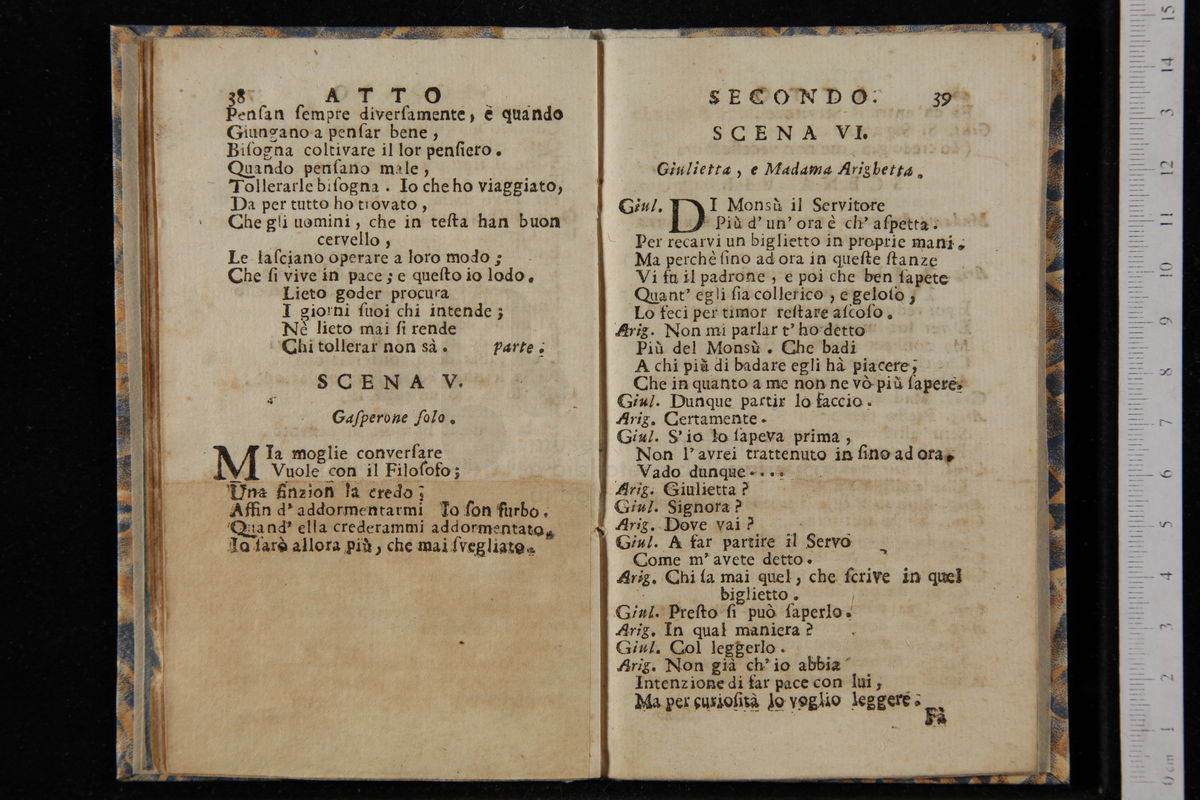 38 ATTO
Penſan ſempre diverſamente, è quando
Giungano a penſar bene,
Biſogna coltivare il lor penſiero.
Quando penſano male,
Tollerarle biſogna. Io che ho viaggiato,
Da per tutto ho trovato,
Che gli uomini, che in teſta han buon
cervello,
Le laſciano operare a loro modo;
Che ſi vive in pace; e queſto io lodo.
Lieto goder procura
I giorni ſuoi chi intende;
Nè lieto mai ſi rende
Chi tollerar non sà. parte.
SCENA V.
Gaſperone ſolo.
MIa moglie converſare
Vuole con il Filoſofo;
Una finzion la credo;
Affin d'addormentarmi Io ſon furbo.
Quand' ella crederammi addormentato,
Io ſarò allora più, che mai ſvegliato.
SECONDO. 39
SCENA VI.
Giulietta, e Madama Arighetta.
Giul. DI Monsù il Servitore
Più d'un' ora è ch' aſpetta.
Per recarvi un biglietto in proprie mani.
Ma perchè ſino ad ora in queſte ſtanze
Vi fu il padrone, e poi che ben ſapete
Quant' egli ſia collerico, e geloſo,
Lo feci per timor reſtare aſcoſo.
Arig. Non mi parlar t'ho detto
Più del Monsù. Che badi
A chi più di badare egli hà piacere;
Che in quanto a me non ne vò più ſapere.
Giul. Dunque partir lo faccio.
Arig. Certamente.
Giul. S'io lo ſapeva prima,
Non l'avrei trattenuto in ſino ad ora.
Vado dunque....
Arig. Giulietta?
Giul. Signora?
Arig. Dove vai?
Giul. A far partire il Servo
Come m'avete detto.
Arig. Chi ſa mai quel, che ſcrive in quel
biglietto.
Giul. Preſto ſi può ſaperlo.
Arig. In qual maniera?
Giul. Col leggerlo.
Arig. Non già ch'io abbia
Intenzione di far pace con lui,
Ma per curioſità lo voglio leggere.
Fà
15
14
13
12
11
10
9
8
7
6
5
4
3
2
1
0 cm